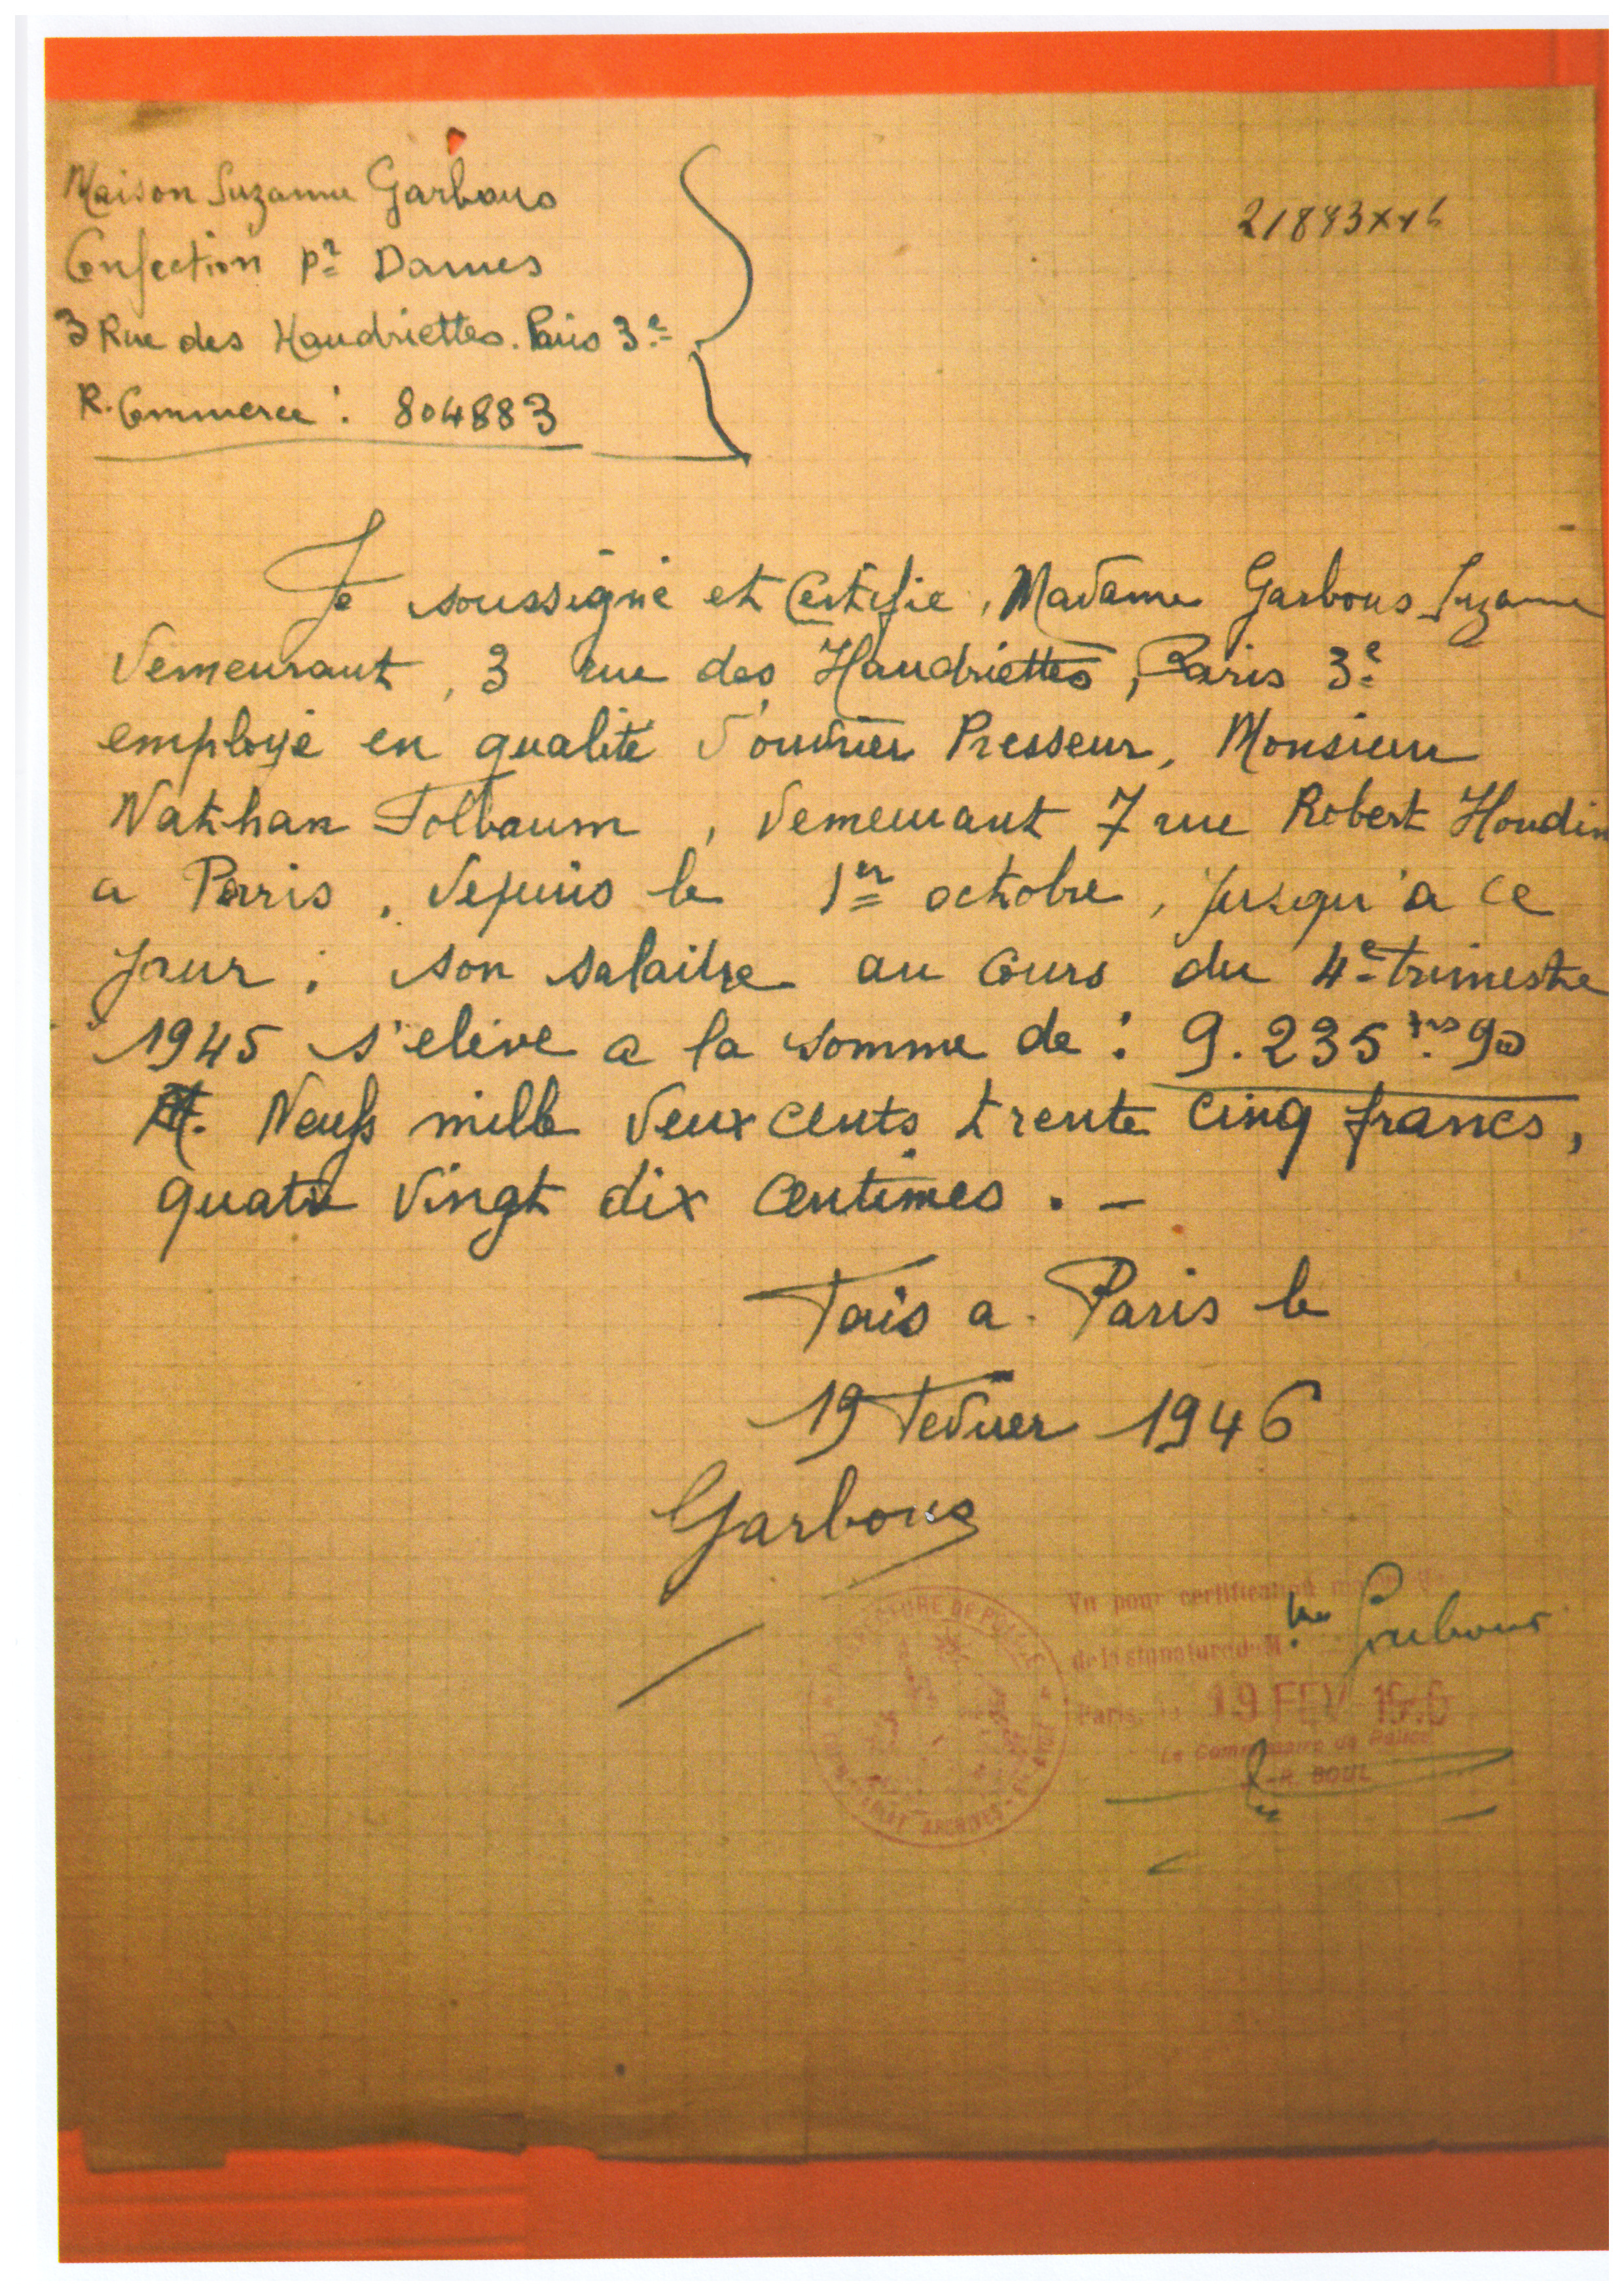 Maison Suzanne Garbous
Confection pr Dames
3 Rue des Haudriettes. Paris 3e
R. Commerce : 804883
21883x46
Je soussigné et Certifie, Madame Garbous Suzanne
demeurant, 3 rue des Haudriettes, Paris 3e
employé en qualité d'ouvrier Presseur, Monsieur
Nathan Folbaum, demeurant 7 rue Robert Houdin
a Paris, depuis le 1er octobre, jusqu'a ce
jour ; son salaire au cours du 4e trimestre
1945 s'eleve a la somme de : 9.235 frs 90
Neufs mille deux cents trente cinq francs,
quatre vingt dix centimes. -
Fais a. Paris le
19 Fevrier 1946
Garbous
Vu pour certification
de la signature de M me Garbous
Paris, le 19 FEV 1946
Le Commissaire de Police
R. BOUL
PREFECTURE DE POLICE
ARCHIVES